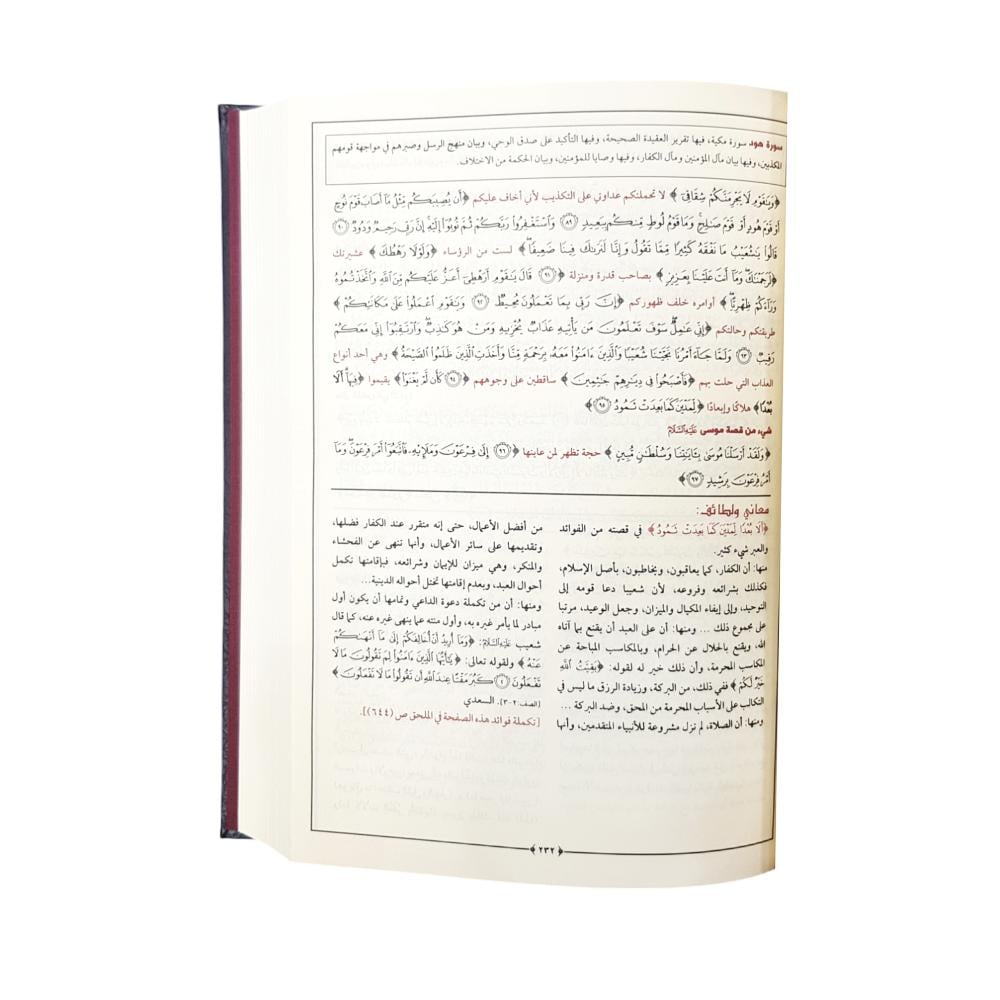 سورة هود سورة مكية، فيها تقرير العقيدة الصحيحة، وفيها التأكيد على صدق الوحي، وبيان منهج الرسل وصبرهم في مواجهة قومهم
المكذبين، وفيها بيان مآل المؤمنين ومآل الكفار، وفيها وصايا للمؤمنين، وبيان الحكمة من الاختلاف.
﴿وَيَٰقَوْمِ لَا يَجْرِمَنَّكُمْ شِقَاقِىٓ﴾ لا تحملنكم عداوتي على التكذيب لأني أخاف عليكم ﴿أَن يُصِيبَكُم مِّثْلُ مَآ أَصَابَ قَوْمَ نُوحٍ
أَوْ قَوْمَ هُودٍ أَوْ قَوْمَ صَٰلِحٍۚ وَمَا قَوْمُ لُوطٍ مِّنكُم بِبَعِيدٍ ٨٩ وَٱسْتَغْفِرُوا۟ رَبَّكُمْ ثُمَّ تُوبُوٓا۟ إِلَيْهِۚ إِنَّ رَبِّى رَحِيمٌ وَدُودٌ ٩٠
قَالُوا۟ يَٰشُعَيْبُ مَا نَفْقَهُ كَثِيرًا مِّمَّا تَقُولُ وَإِنَّا لَنَرَىٰكَ فِينَا ضَعِيفًاۖ﴾ لست من الرؤساء ﴿وَلَوْلَا رَهْطُكَ﴾ عشيرتك
﴿لَرَجَمْنَٰكَۖ وَمَآ أَنتَ عَلَيْنَا بِعَزِيزٍ﴾ بصاحب قدرة ومنزلة ﴿٩١ قَالَ يَٰقَوْمِ أَرَهْطِىٓ أَعَزُّ عَلَيْكُم مِّنَ ٱللَّهِ وَٱتَّخَذْتُمُوهُ
وَرَآءَكُمْ ظِهْرِيًّاۖ﴾ أوامره خلف ظهوركم ﴿إِنَّ رَبِّى بِمَا تَعْمَلُونَ مُحِيطٌ ٩٢ وَيَٰقَوْمِ ٱعْمَلُوا۟ عَلَىٰ مَكَانَتِكُمْ﴾
طريقتكم وحالتكم ﴿إِنِّى عَٰمِلٌۖ سَوْفَ تَعْلَمُونَ مَن يَأْتِيهِ عَذَابٌ يُخْزِيهِ وَمَنْ هُوَ كَٰذِبٌۖ وَٱرْتَقِبُوٓا۟ إِنِّى مَعَكُمْ
رَقِيبٌ ٩٣ وَلَمَّا جَآءَ أَمْرُنَا نَجَّيْنَا شُعَيْبًا وَٱلَّذِينَ ءَامَنُوا۟ مَعَهُۥ بِرَحْمَةٍ مِّنَّا وَأَخَذَتِ ٱلَّذِينَ ظَلَمُوا۟ ٱلصَّيْحَةُ﴾ وهي أحد أنواع
العذاب التي حلت بهم ﴿فَأَصْبَحُوا۟ فِى دِيَٰرِهِمْ جَٰثِمِينَ﴾ ساقطين على وجوههم ﴿٩٤ كَأَن لَّمْ يَغْنَوْا۟﴾ يقيموا ﴿فِيهَآۗ أَلَا
بُعْدًا﴾ هلاكًا وإبعادًا ﴿لِّمَدْيَنَ كَمَا بَعِدَتْ ثَمُودُ ٩٥﴾
شيء من قصة موسى عَلَيْهِ السَّلَامُ
﴿وَلَقَدْ أَرْسَلْنَا مُوسَىٰ بِـَٔايَٰتِنَا وَسُلْطَٰنٍ مُّبِينٍ﴾ حجة تظهر لمن عاينها ﴿٩٦ إِلَىٰ فِرْعَوْنَ وَمَلَإِي۟هِۦ فَٱتَّبَعُوٓا۟ أَمْرَ فِرْعَوْنَۖ وَمَآ
أَمْرُ فِرْعَوْنَ بِرَشِيدٍ ٩٧﴾
معاني ولطائف:
﴿أَلَا بُعْدًا لِّمَدْيَنَ كَمَا بَعِدَتْ ثَمُودُ﴾ في قصته من الفوائد
والعبر شيء كثير.
منها: أن الكفار، كما يعاقبون، ويخاطبون، بأصل الإسلام،
فكذلك بشرائعه وفروعه، لأن شعيبا دعا قومه إلى
التوحيد، وإلى إيفاء المكيال والميزان، وجعل الوعيد، مرتبا
على مجموع ذلك ... ومنها: أن على العبد أن يقنع بما آتاه
الله، ويقنع بالحلال عن الحرام، وبالمكاسب المباحة عن
المكاسب المحرمة، وأن ذلك خير له لقوله: ﴿بَقِيَّتُ ٱللَّهِ
خَيْرٌ لَّكُمْ﴾ ففي ذلك، من البركة، وزيادة الرزق ما ليس في
التكالب على الأسباب المحرمة من المحق، وضد البركة ...
ومنها: أن الصلاة، لم تزل مشروعة للأنبياء المتقدمين، وأنها
من أفضل الأعمال، حتى إنه متقرر عند الكفار فضلها،
وتقديمها على سائر الأعمال، وأنها تنهى عن الفحشاء
والمنكر، وهي ميزان للإيمان وشرائعه، فبإقامتها تكمل
أحوال العبد، وبعدم إقامتها تختل أحواله الدينية...
ومنها: أن من تكملة دعوة الداعي وتمامها أن يكون أول
مبادر لما يأمر غيره به، وأول منته عما ينهى غيره عنه، كما قال
شعيب عَلَيْهِ السَّلَامُ: ﴿وَمَآ أُرِيدُ أَنْ أُخَالِفَكُمْ إِلَىٰ مَآ أَنْهَىٰكُمْ
عَنْهُ﴾ ولقوله تعالى: ﴿يَٰٓأَيُّهَا ٱلَّذِينَ ءَامَنُوا۟ لِمَ تَقُولُونَ مَا لَا
تَفْعَلُونَ ٢ كَبُرَ مَقْتًا عِندَ ٱللَّهِ أَن تَقُولُوا۟ مَا لَا تَفْعَلُونَ﴾
[الصف:٢-٣]. السعدي
[تكملة فوائد هذه الصفحة في الملحق ص (٦٤٤)].
٢٣٢